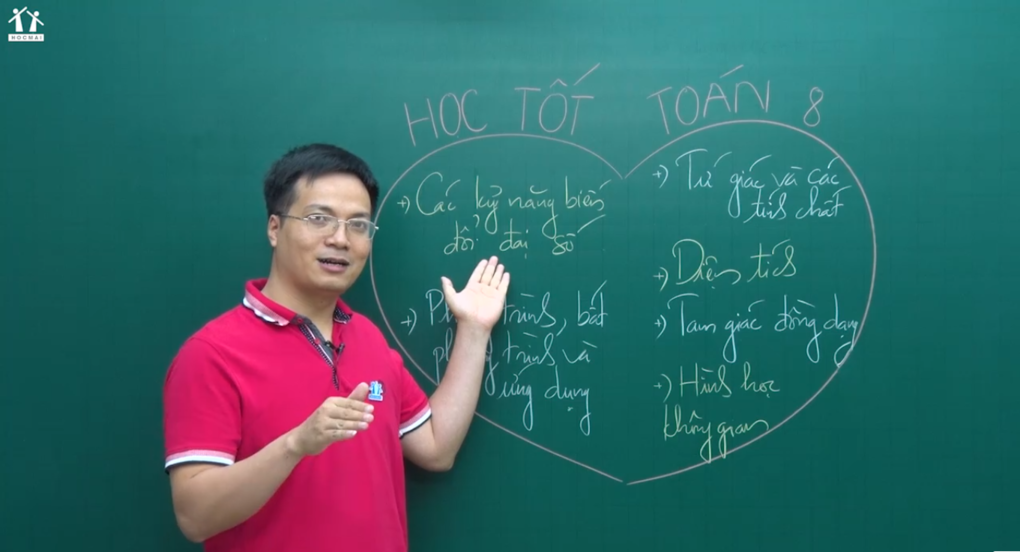 HOCMAI
HỌC TỐT TOÁN 8
→) Các kỹ năng biến
đổi đại số
→) trình, bất
trình và
ứng dụng
→) Tứ giác và các
tính chất
→) Diện tích
→) Tam giác đồng dạng
→) Hình học
không gian